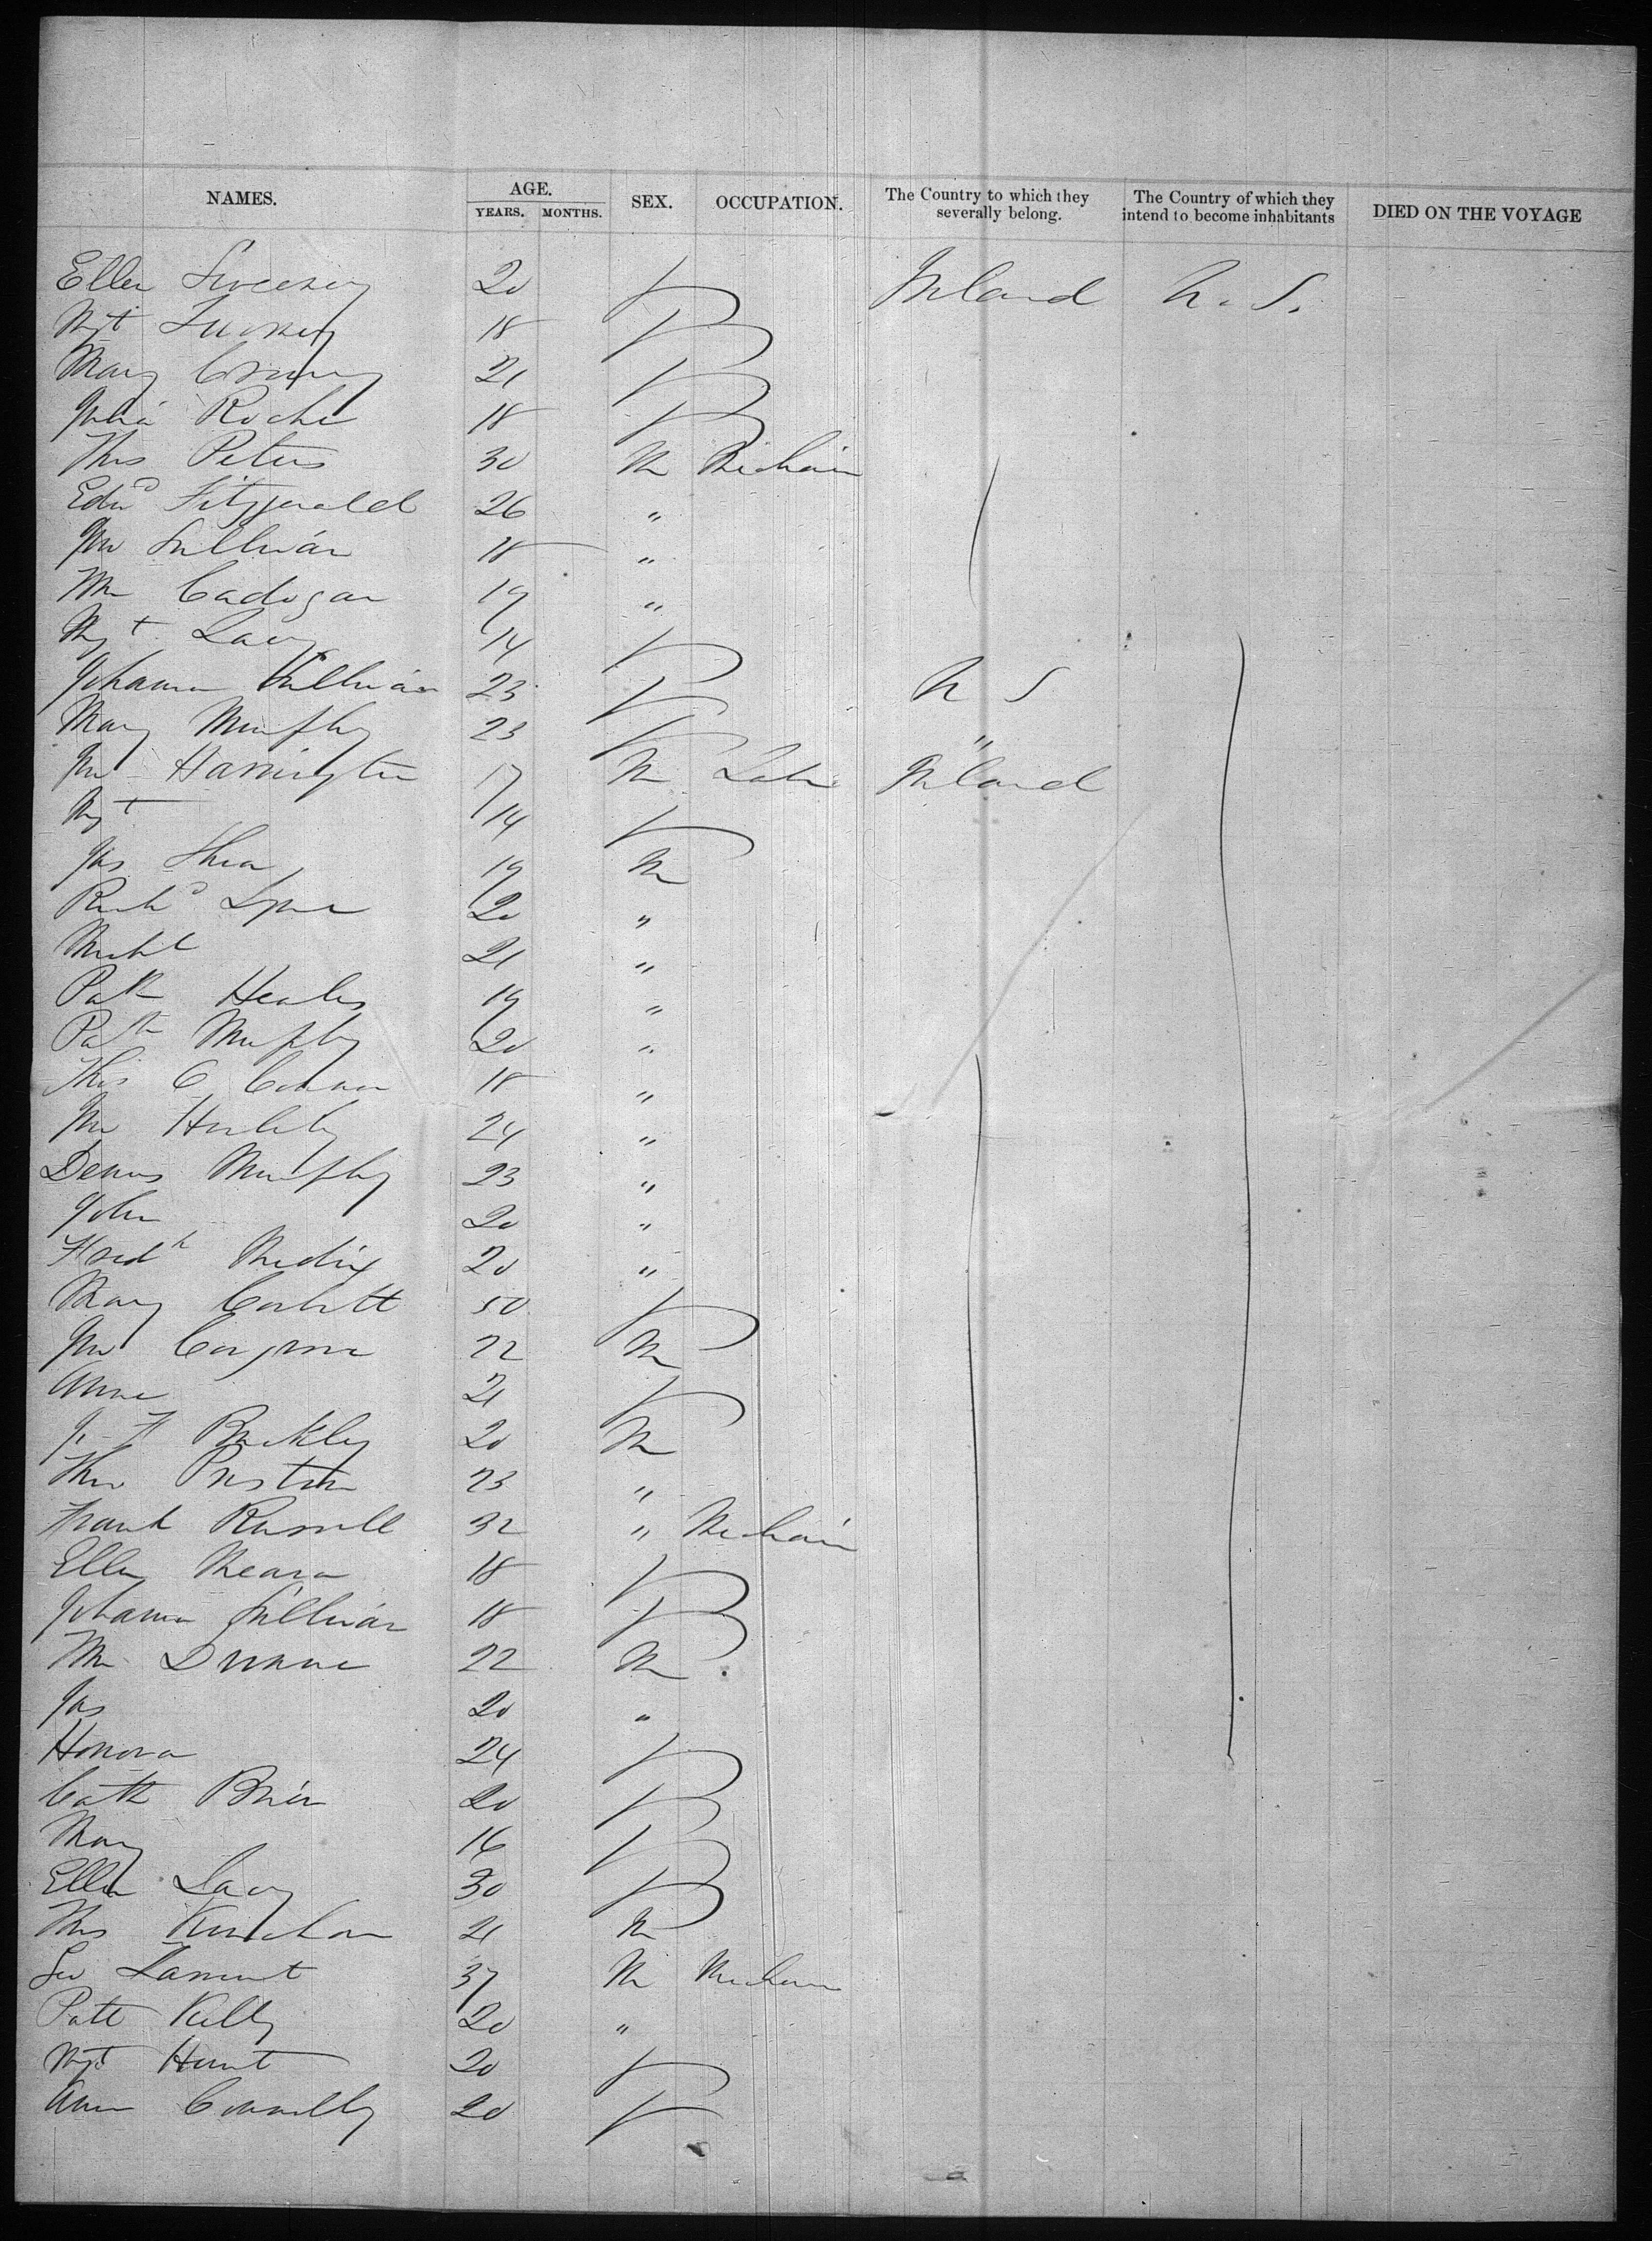 NAMES. AGE. YEARS. MONTHS. SEX. OCCUPATION. The Country to which they severally belong. The Country of which they intend to become inhabitants DIED ON THE VOYAGE
Ellen Sweeney 20 F Ireland U. S.
Mgt 18 F
Mary 21 F
Julia Roche 18 F
Thos Peters 30 M Mechanic
Edwd Fitzgerald 26 "
Jno Sullivan 18 "
Wm Cadogan 19 "
Mgt Lacy 14 F
Johanna Sullivan 23 F U S
Mary Murphy 23 F "
Jno Harrington 17 M Labr Ireland
Mgt 14 F
Jas Shea 19 M
Richd Lyne 20 "
Michl 21 "
Patk 19 "
Patk Murphy 20 "
Thos O Connor 18 "
Jno Hurley 24 "
Denis Murphy 23 "
John 20 "
Fredk 20 "
Mary Corbett 50 F
Jno Cosgrove 22 M
Anne 21 F
Buckley 20 M
Thos Preston 23 "
Frank Russell 32 " Mechanic
Ellen Meara 18 F
Johanna Sullivan 18 F
Wm 22 M
Jas 20 "
Honora 24 F
Cath Brien 20 F
Mary 16 F
Ellen Lacy 30 F
Thos 21 M
Geo Lamont 37 M Mechanic
Patk Kelly 20 "
Mgt Hunt 20 F
Ann Connelly 20 F